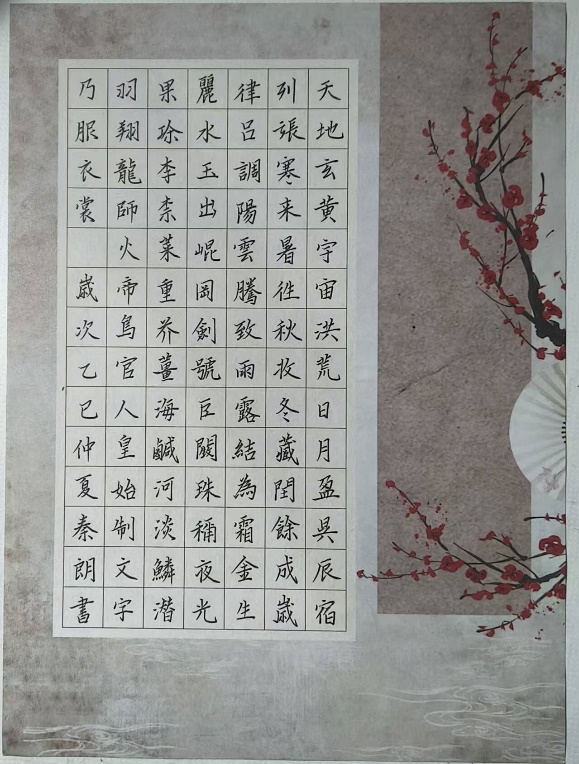 天地玄黄宇宙洪荒日月盈昃辰宿
列張寒来暑往秋收冬藏閏餘成歲
律吕調陽雲騰致雨露結為霜金生
麗水玉出崐岡劍號巨闕珠稱夜光
果珍李柰菜重芥薑海鹹河淡鱗潛
羽翔龍師火帝鳥官人皇始制文字
乃服衣裳 歲次乙巳仲夏秦朗書